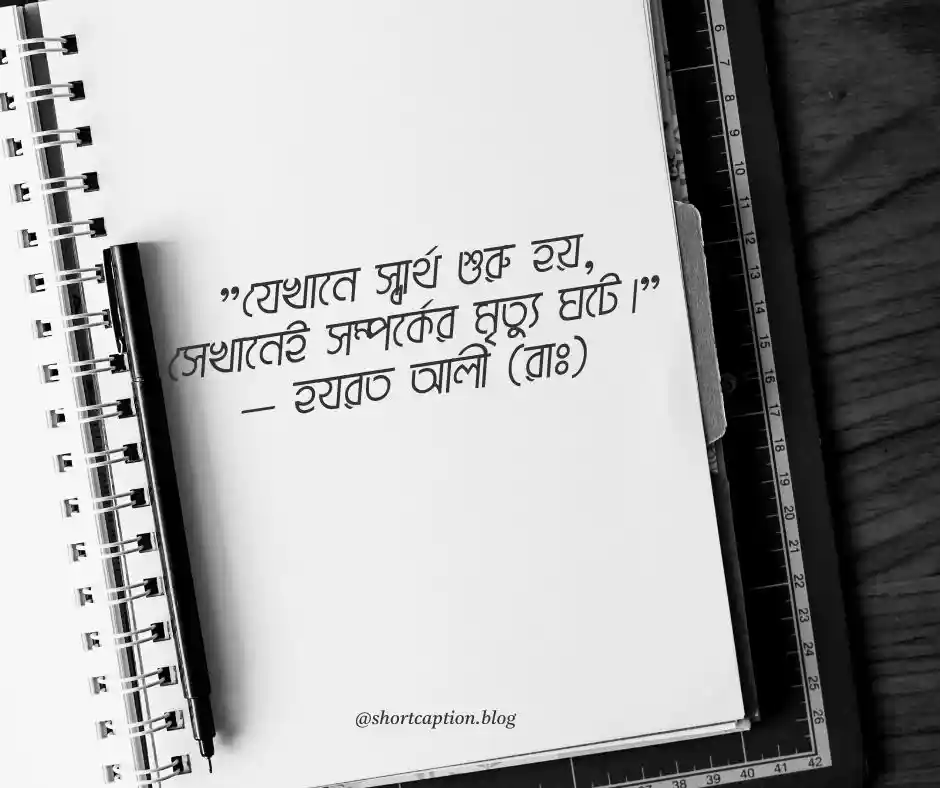 ”যেখানে স্বার্থ শুরু হয়,
সেখানেই সম্পর্কের মৃত্যু ঘটে।”
— হযরত আলী (রাঃ)
@shortcaption.blog
6
7
8
9
10
11
12
13
14
15
16
17
18
19
20
21
22
23
24
25
26
38 39 40 41 42